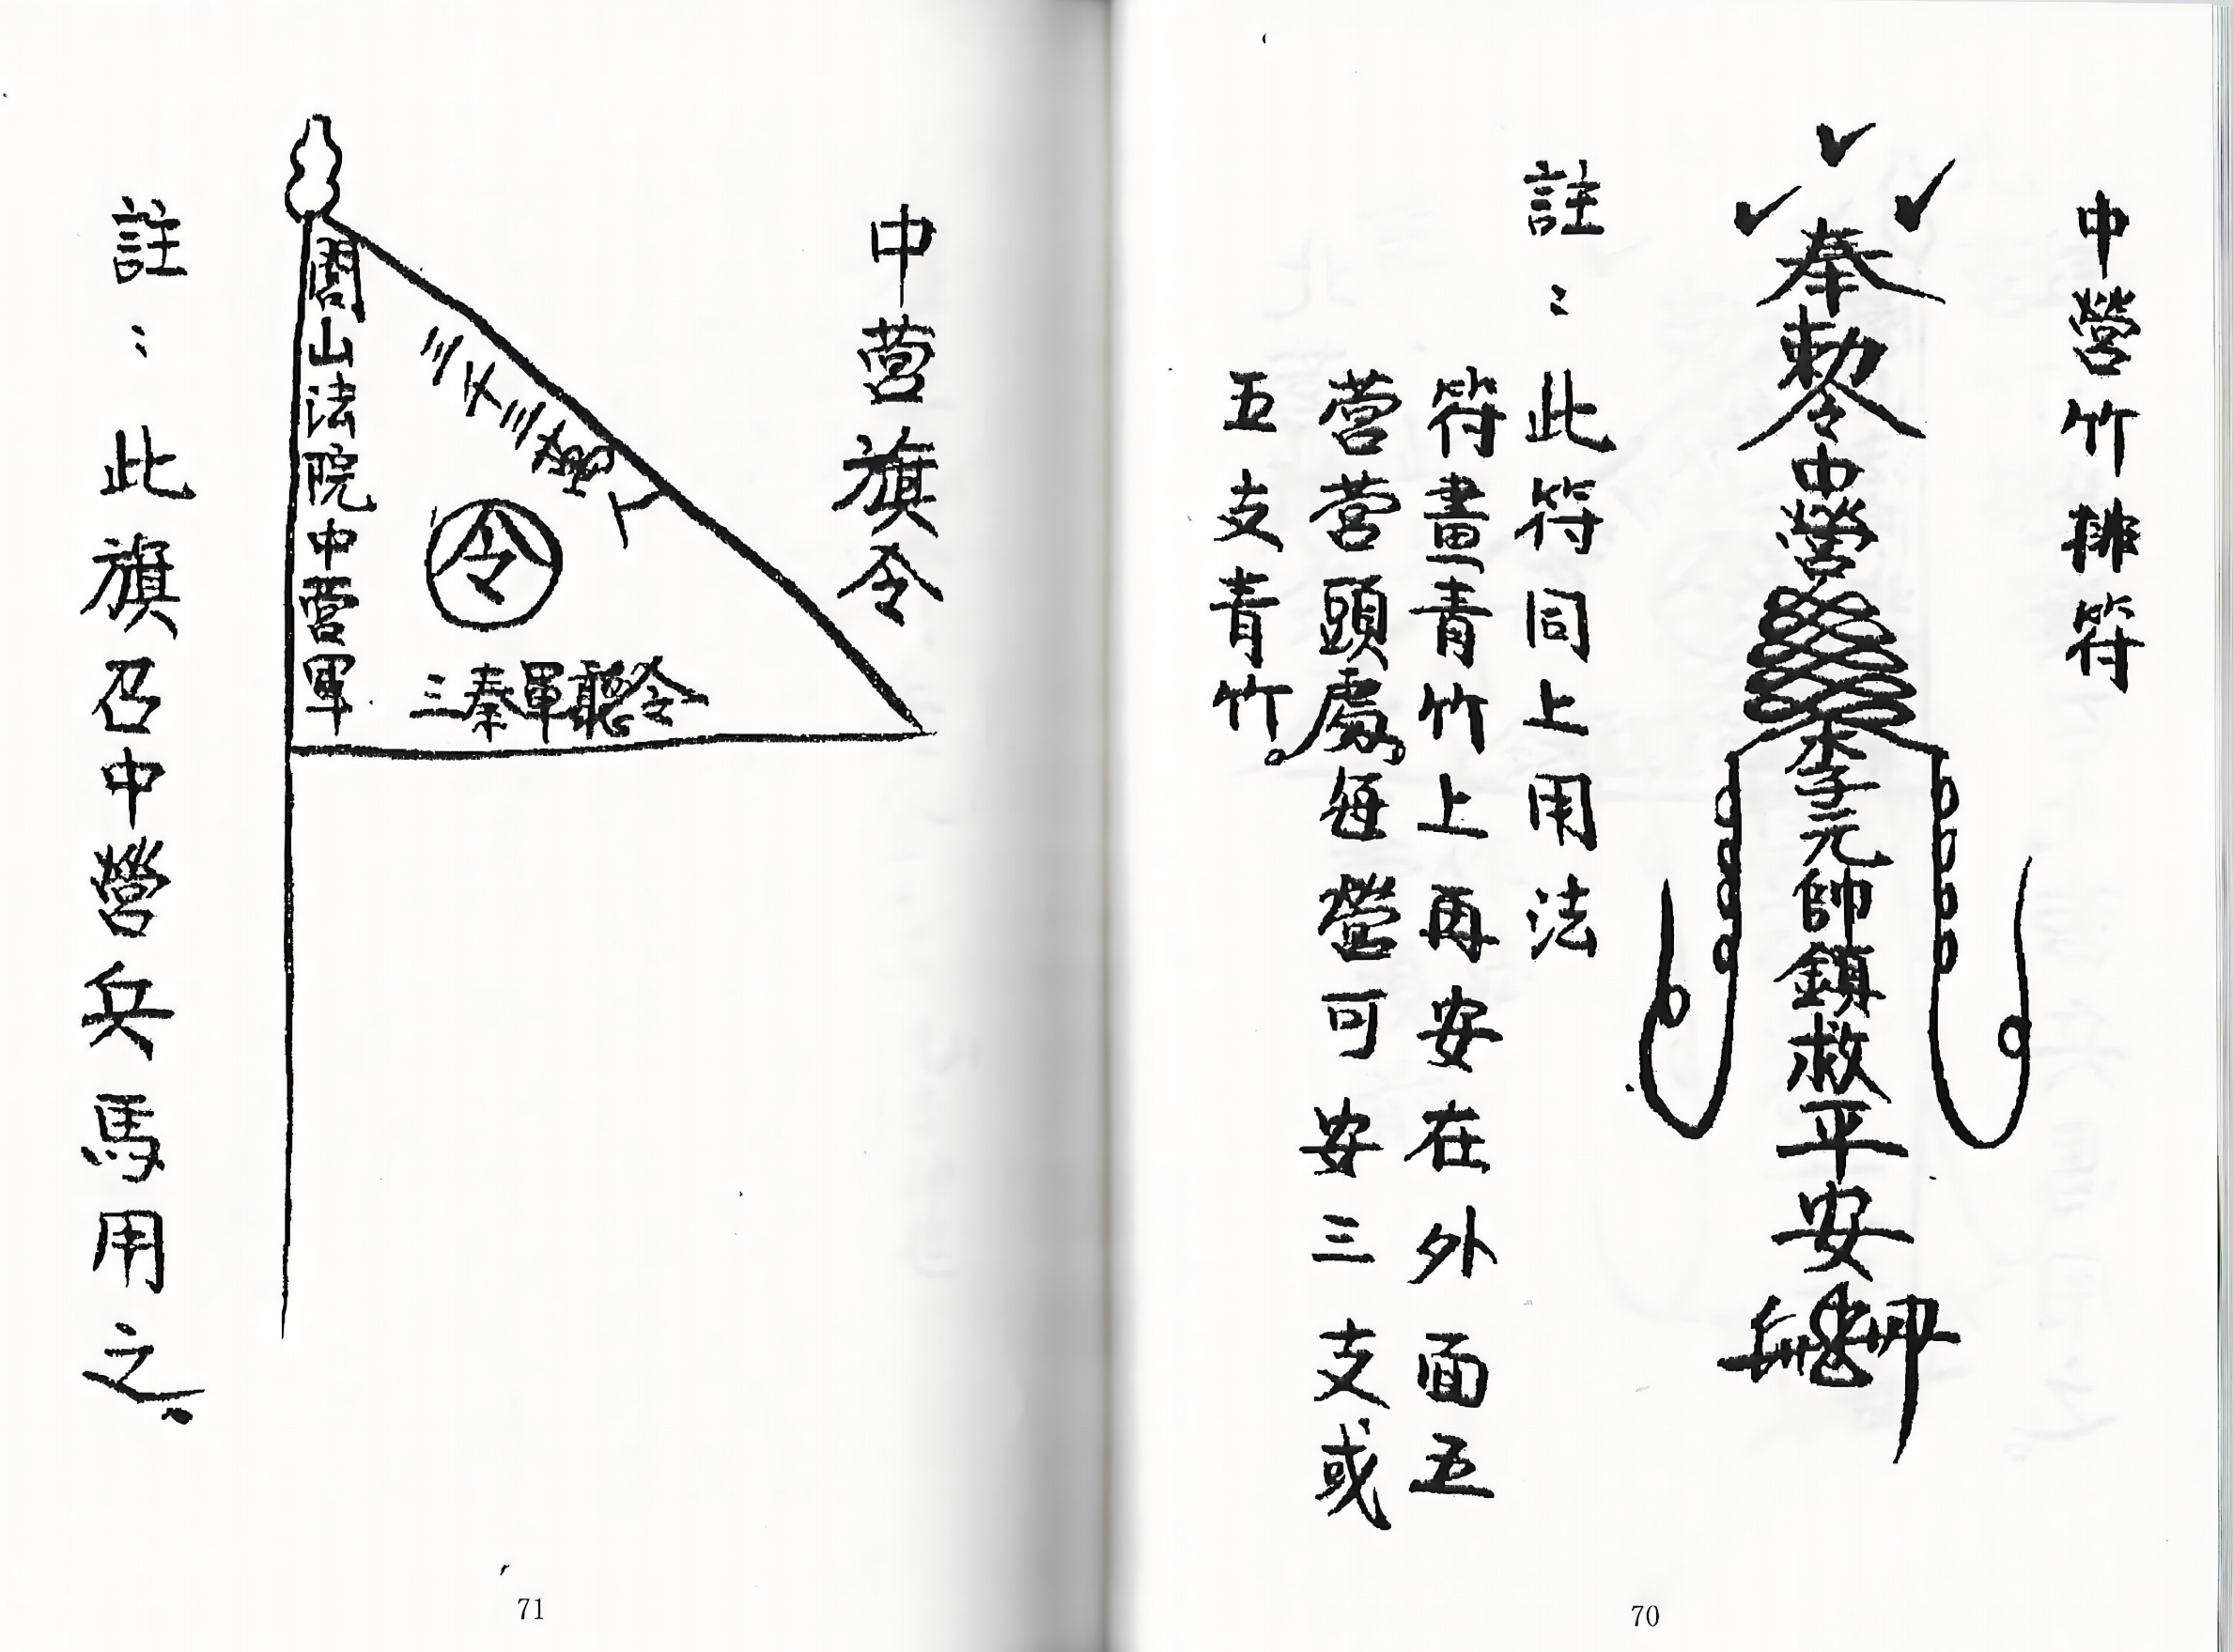 中營竹排符
奉勅令中營李元帥鎮救平安
註：此符同上用法
符畫青竹上再安在外面五
營營頭處。每營可安三支或
五支青竹。
70
中營旗令
閭山法院中營軍
令
三秦軍聽令
註：此旗召中營兵馬用之。
71